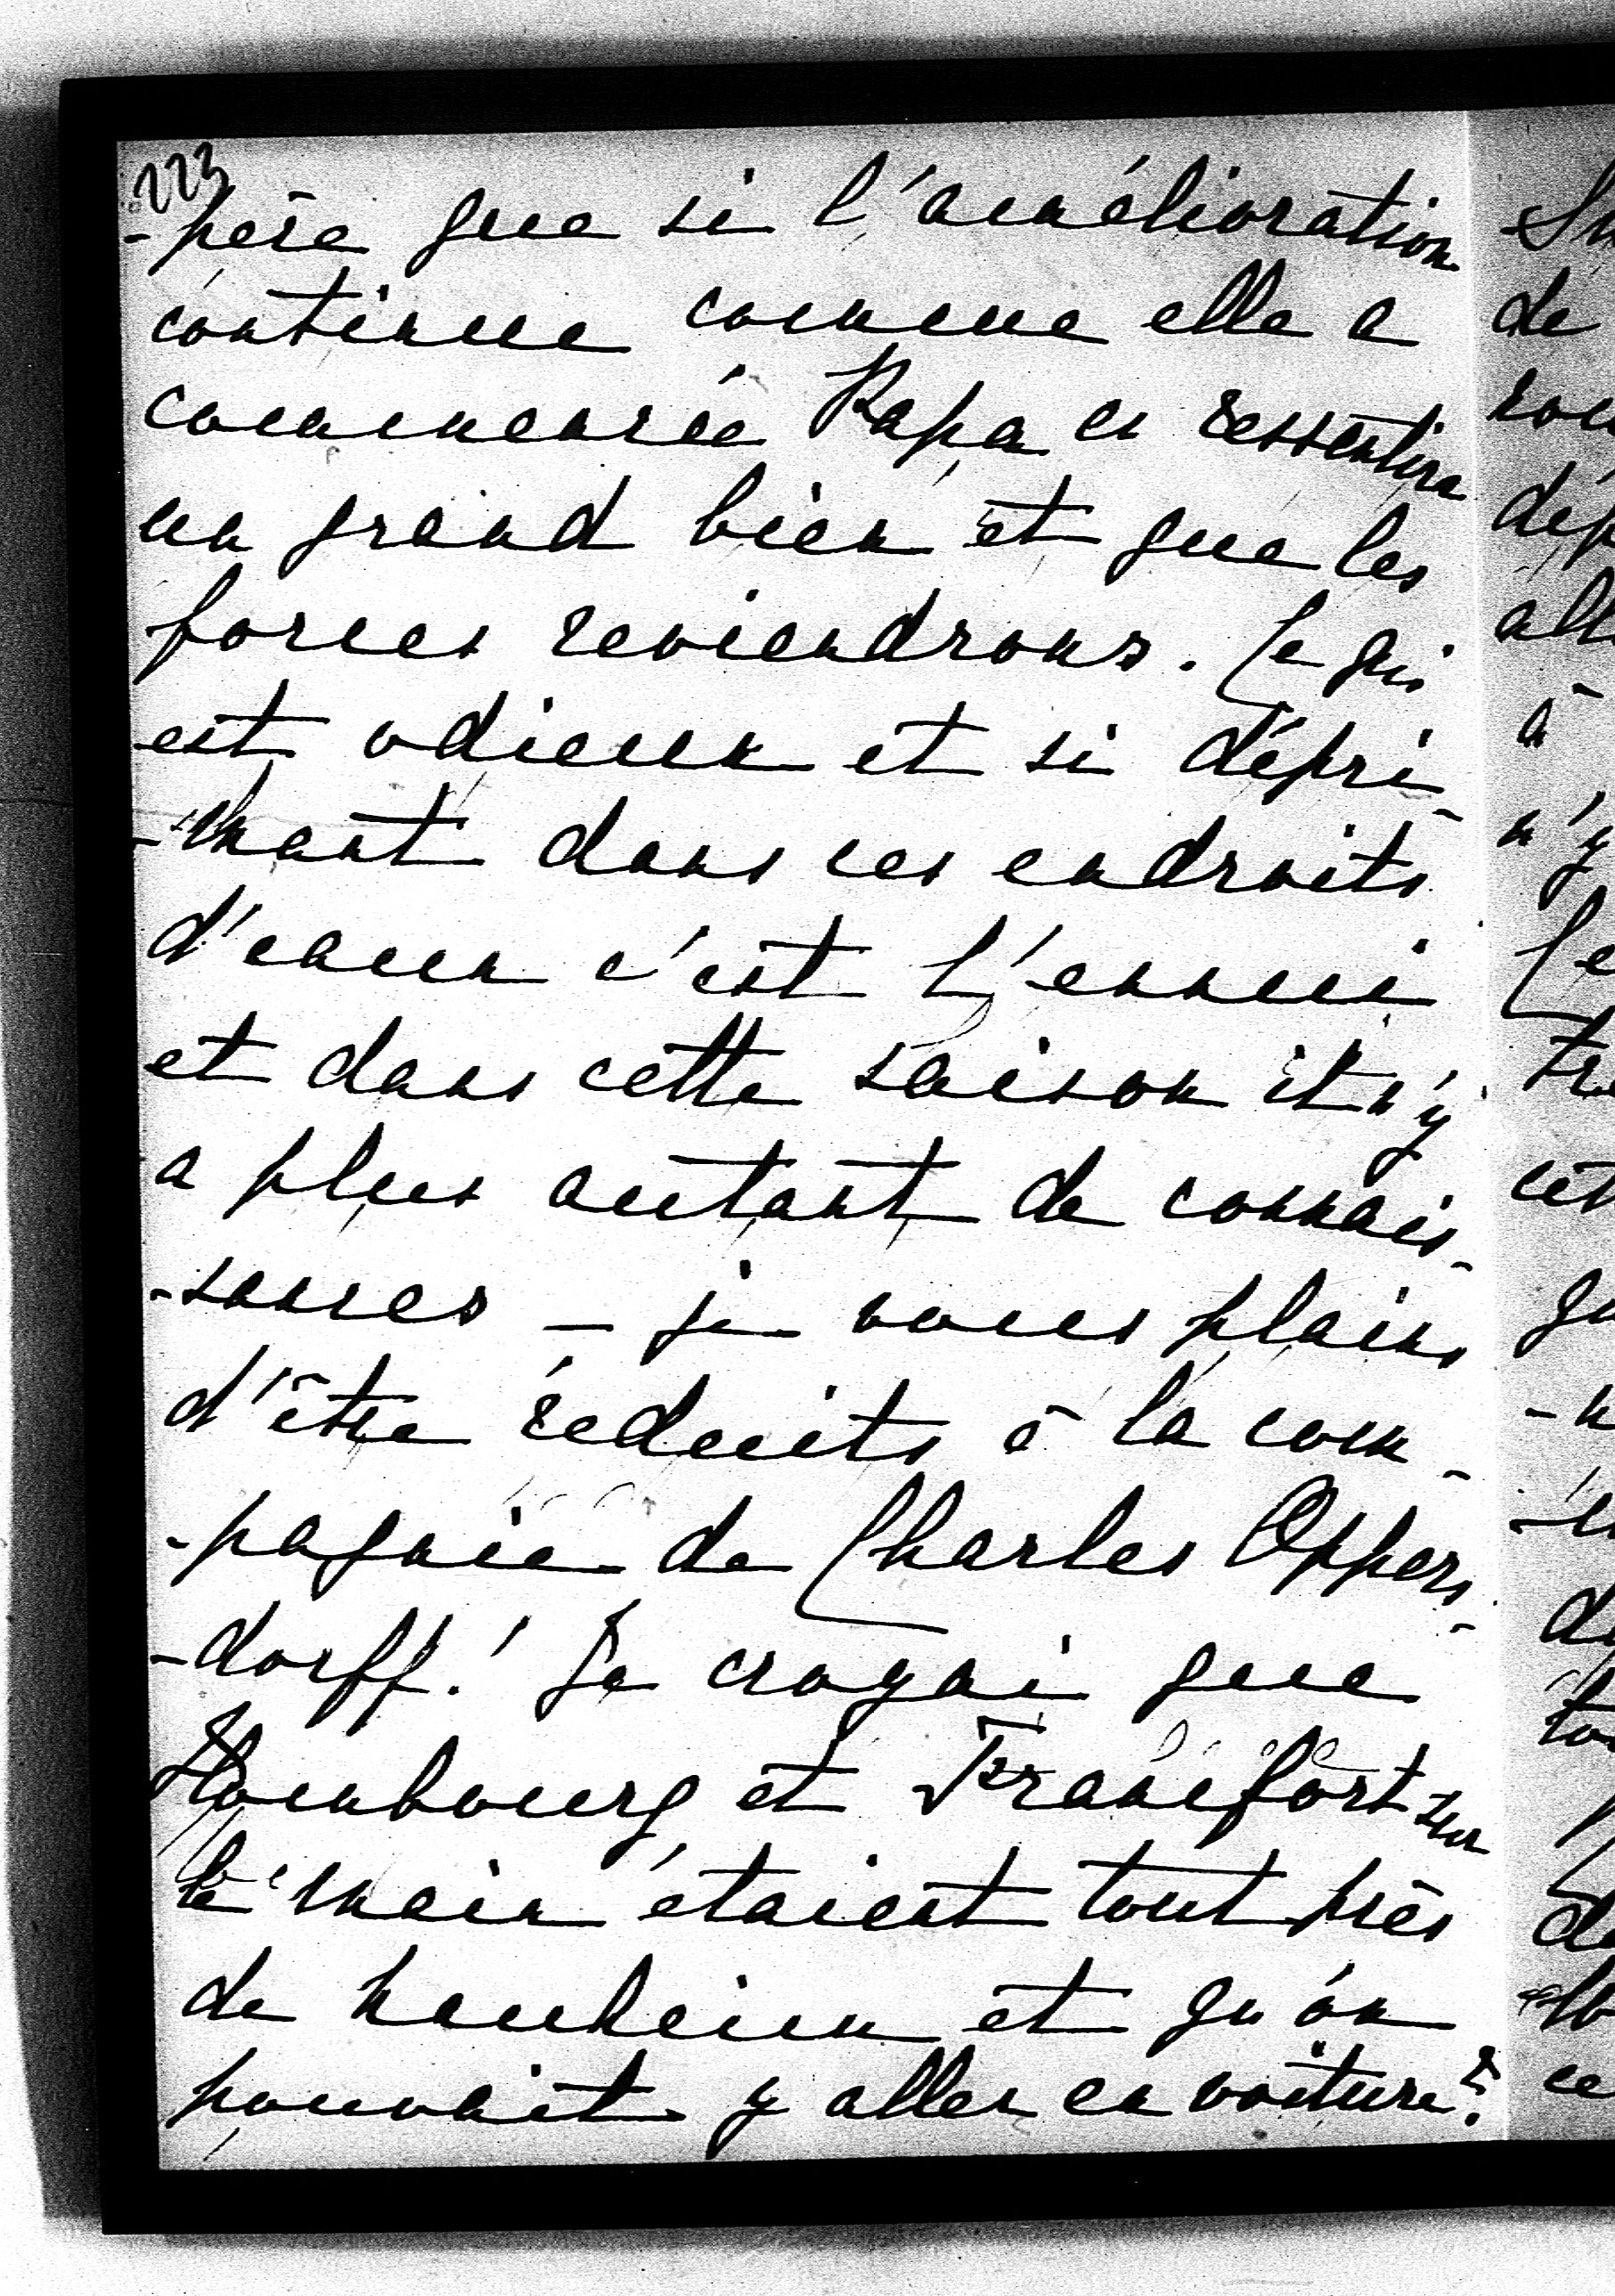 223
-père que si l'amélioration
continue comme elle a
commencée Papa en ressentira
un grand bien et que les
forces reviendrons. Ce qui
est odieux et si dépri-
-mant dans ces endroits
d'eaux c'est l'ennui
et dans cette saison il n'y
a plus autant de connais-
-sances – je vous plains
d'être réduits à la com-
-pagnie de Charles Oppers-
-dorff! Je croyai que
Hombourg et Francfort sur
le main étaient tout près
de Nauheim et qu'on
pouvait y aller en voiture?